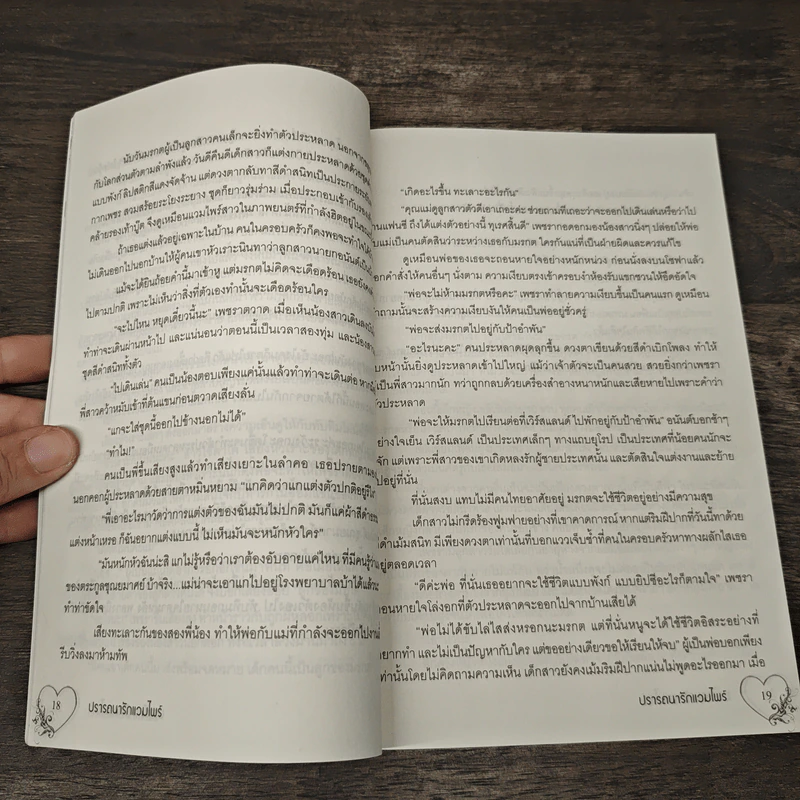 นับวันมรกตผู้เป็นลูกสาวคนเล็กจะยิ่งทำตัวประหลาด นอกจาก
กับโลกส่วนตัวตามลำพังแล้ว วันดีคืนดีเด็กสาวก็แต่งกายประหลาดด้วย
แบบพังก์ ลิปสติกสีแดงจัดจ้าน แต่ดวงตากลับทาสีดำสนิทเป็นประกาย
กากเพชร สวมสร้อยระโยงระยาง ชุดก็ยาวรุ่มร่าม เมื่อประกอบเข้ากับ
คล้ายรองเท้าบู๊ต จึงดูเหมือนแวมไพร์สาวในภาพยนตร์ที่กำลังฮิตอยู่ใน
ถ้าเธอแต่งแล้วอยู่เฉพาะในบ้าน คนในครอบครัวก็คงพอจะทำใจได้
ไม่เดินออกไปนอกบ้านให้ผู้คนเขาหัวเราะนินทาว่าลูกสาวนายกอนันต์เป็น
แม้จะได้ยินถ้อยคำนี้มาเข้าหู แต่มรกตไม่คิดจะเดือดร้อน เธอยังคง
ไปตามปกติ เพราะไม่เห็นว่าสิ่งที่ตัวเองทำนั้นจะเดือดร้อนใคร
"จะไปไหน หยุดเดี๋ยวนี้นะ" เพชราตวาด เมื่อเห็นน้องสาวเดินลง
ทำท่าจะเดินผ่านหน้าไป และแน่นอนว่าตอนนี้เป็นเวลาสองทุ่ม และน้องสาว
ชุดสีดำสนิททั้งตัว
"ไปเดินเล่น" คนเป็นน้องตอบเพียงแค่นั้นแล้วทำท่าจะเดินต่อ หาก
พี่สาวคว้าหมับเข้าที่ต้นแขนก่อนตวาดเสียงลั่น
"แกจะใส่ชุดนี้ออกไปข้างนอกไม่ได้"
"ทำไม!"
คนเป็นพี่ขึ้นเสียงสูงแล้วทำเสียงเยาะในลำคอ เธอปรายตามอง
นอกคอกผู้ประหลาดด้วยสายตาหมิ่นหยาม "แกคิดว่าแกแต่งตัวปกติอยู่รึไง
"พี่เอาอะไรมาวัดว่าการแต่งตัวของฉันมันไม่ปกติ มันก็แค่ผ้าสีดำ
แต่งหน้าเหรอ ก็ฉันอยากแต่งแบบนี้ ไม่เห็นมันจะหนักหัวใคร"
"มันหนักหัวฉันน่ะสิ แกไม่รู้หรือว่าเราต้องอับอายแค่ไหน ที่มีคนรู้ว่า
ของตระกูลชุณอมาศย์ บ้าจริง...แม่น่าจะเอาแกไปอยู่โรงพยาบาลบ้าได้แล้วนะ
ทำท่าขัดใจ
เสียงทะเลาะกันของสองพี่น้อง ทำให้พ่อกับแม่ที่กำลังจะออกไปงาน
รีบวิ่งลงมาห้ามทัพ
18
ปรารถนารักแวมไพร์
"เกิดอะไรขึ้น ทะเลาะอะไรกัน"
"คุณแม่ดูลูกสาวตัวดีเอาเถอะค่ะ ช่วยถามที่เถอะว่าจะออกไปเดินเล่นหรือว่าไป
นแฟนซี ถึงได้แต่งตัวอย่างนี้ ทุเรศสิ้นดี" เพชรากอดอกมองน้องสาวนิ่งๆ ปล่อยให้พ่อ
บแม่เป็นคนตัดสินว่าระหว่างเธอกับมรกต ใครกันแน่ที่เป็นฝ่ายผิดและควรแก้ไข
ดูเหมือนพ่อของเธอจะถอนหายใจอย่างหนักหน่วง ก่อนนั่งลงบนโซฟาแล้ว
อกคำสั่งให้คนอื่นๆ นั่งตาม ความเงียบตรงเข้าครอบงำห้องรับแขกชวนให้อึดอัดใจ
"พ่อจะไม่ห้ามมรกตหรือคะ" เพชราทำลายความเงียบขึ้นเป็นคนแรก ดูเหมือน
ถามนั้นจะสร้างความเงียบงันให้คนเป็นพ่ออยู่ชั่วครู่
"พ่อจะส่งมรกตไปอยู่กับป้าอำพัน"
"อะไรนะคะ" คนประหลาดผุดลุกขึ้น ดวงตาเขียนด้วยสีดำเบิกโพลง ทำให้
บหน้านั้นยิ่งดูประหลาดเข้าไปใหญ่ แม้ว่าเจ้าตัวจะเป็นคนสวย สวยยิ่งกว่าเพชรา
เป็นพี่สาวมากนัก ทว่าถูกกลบด้วยเครื่องสำอางหนาหนักและเสียหายไปเพราะคำว่า
ประหลาด
"พ่อจะให้มรกตไปเรียนต่อที่เวิร์สแลนด์ ไปพักอยู่กับป้าอำพัน" อนันต์บอกช้าๆ
ย่างใจเย็น เวิร์สแลนด์ เป็นประเทศเล็กๆ ทางแถบยุโรป เป็นประเทศที่น้อยคนนักจะ
จัก แต่เพราะพี่สาวของเขาเกิดหลงรักผู้ชายประเทศนั้น และตัดสินใจแต่งงานและย้าย
อยู่ที่นั่น
ที่นั่นสงบ แทบไม่มีคนไทยอาศัยอยู่ มรกตจะใช้ชีวิตอยู่อย่างมีความสุข
เด็กสาวไม่กรีดร้องฟูมฟายอย่างที่เขาคาดการณ์ หากแต่ริมฝีปากที่วันนี้ทาด้วย
ดำเม้มสนิท มีเพียงดวงตาเท่านั้นที่บอกแววเจ็บช้ำที่คนในครอบครัวหาทางผลักไสเธอ
ยู่ตลอดเวลา
"ดีค่ะพ่อ ที่นั่นเธออยากจะใช้ชีวิตแบบพังก์ แบบยิปซีอะไรก็ตามใจ" เพชรา
อนหายใจโล่งอกที่ตัวประหลาดจะออกไปจากบ้านเสียได้
"พ่อไม่ได้ขับไล่ไสส่งหรอกนะมรกต แต่ที่นั่นหนูจะได้ใช้ชีวิตอิสระอย่างที่
ยากทำ และไม่เป็นปัญหากับใคร แต่ขออย่างเดียวขอให้เรียนให้จบ" ผู้เป็นพ่อบอกเพียง
ท่านั้นโดยไม่คิดถามความเห็น เด็กสาวยังคงเม้มริมฝีปากแน่นไม่พูดอะไรออกมา เมื่อ
ปรารถนารักแวมไพร์
19